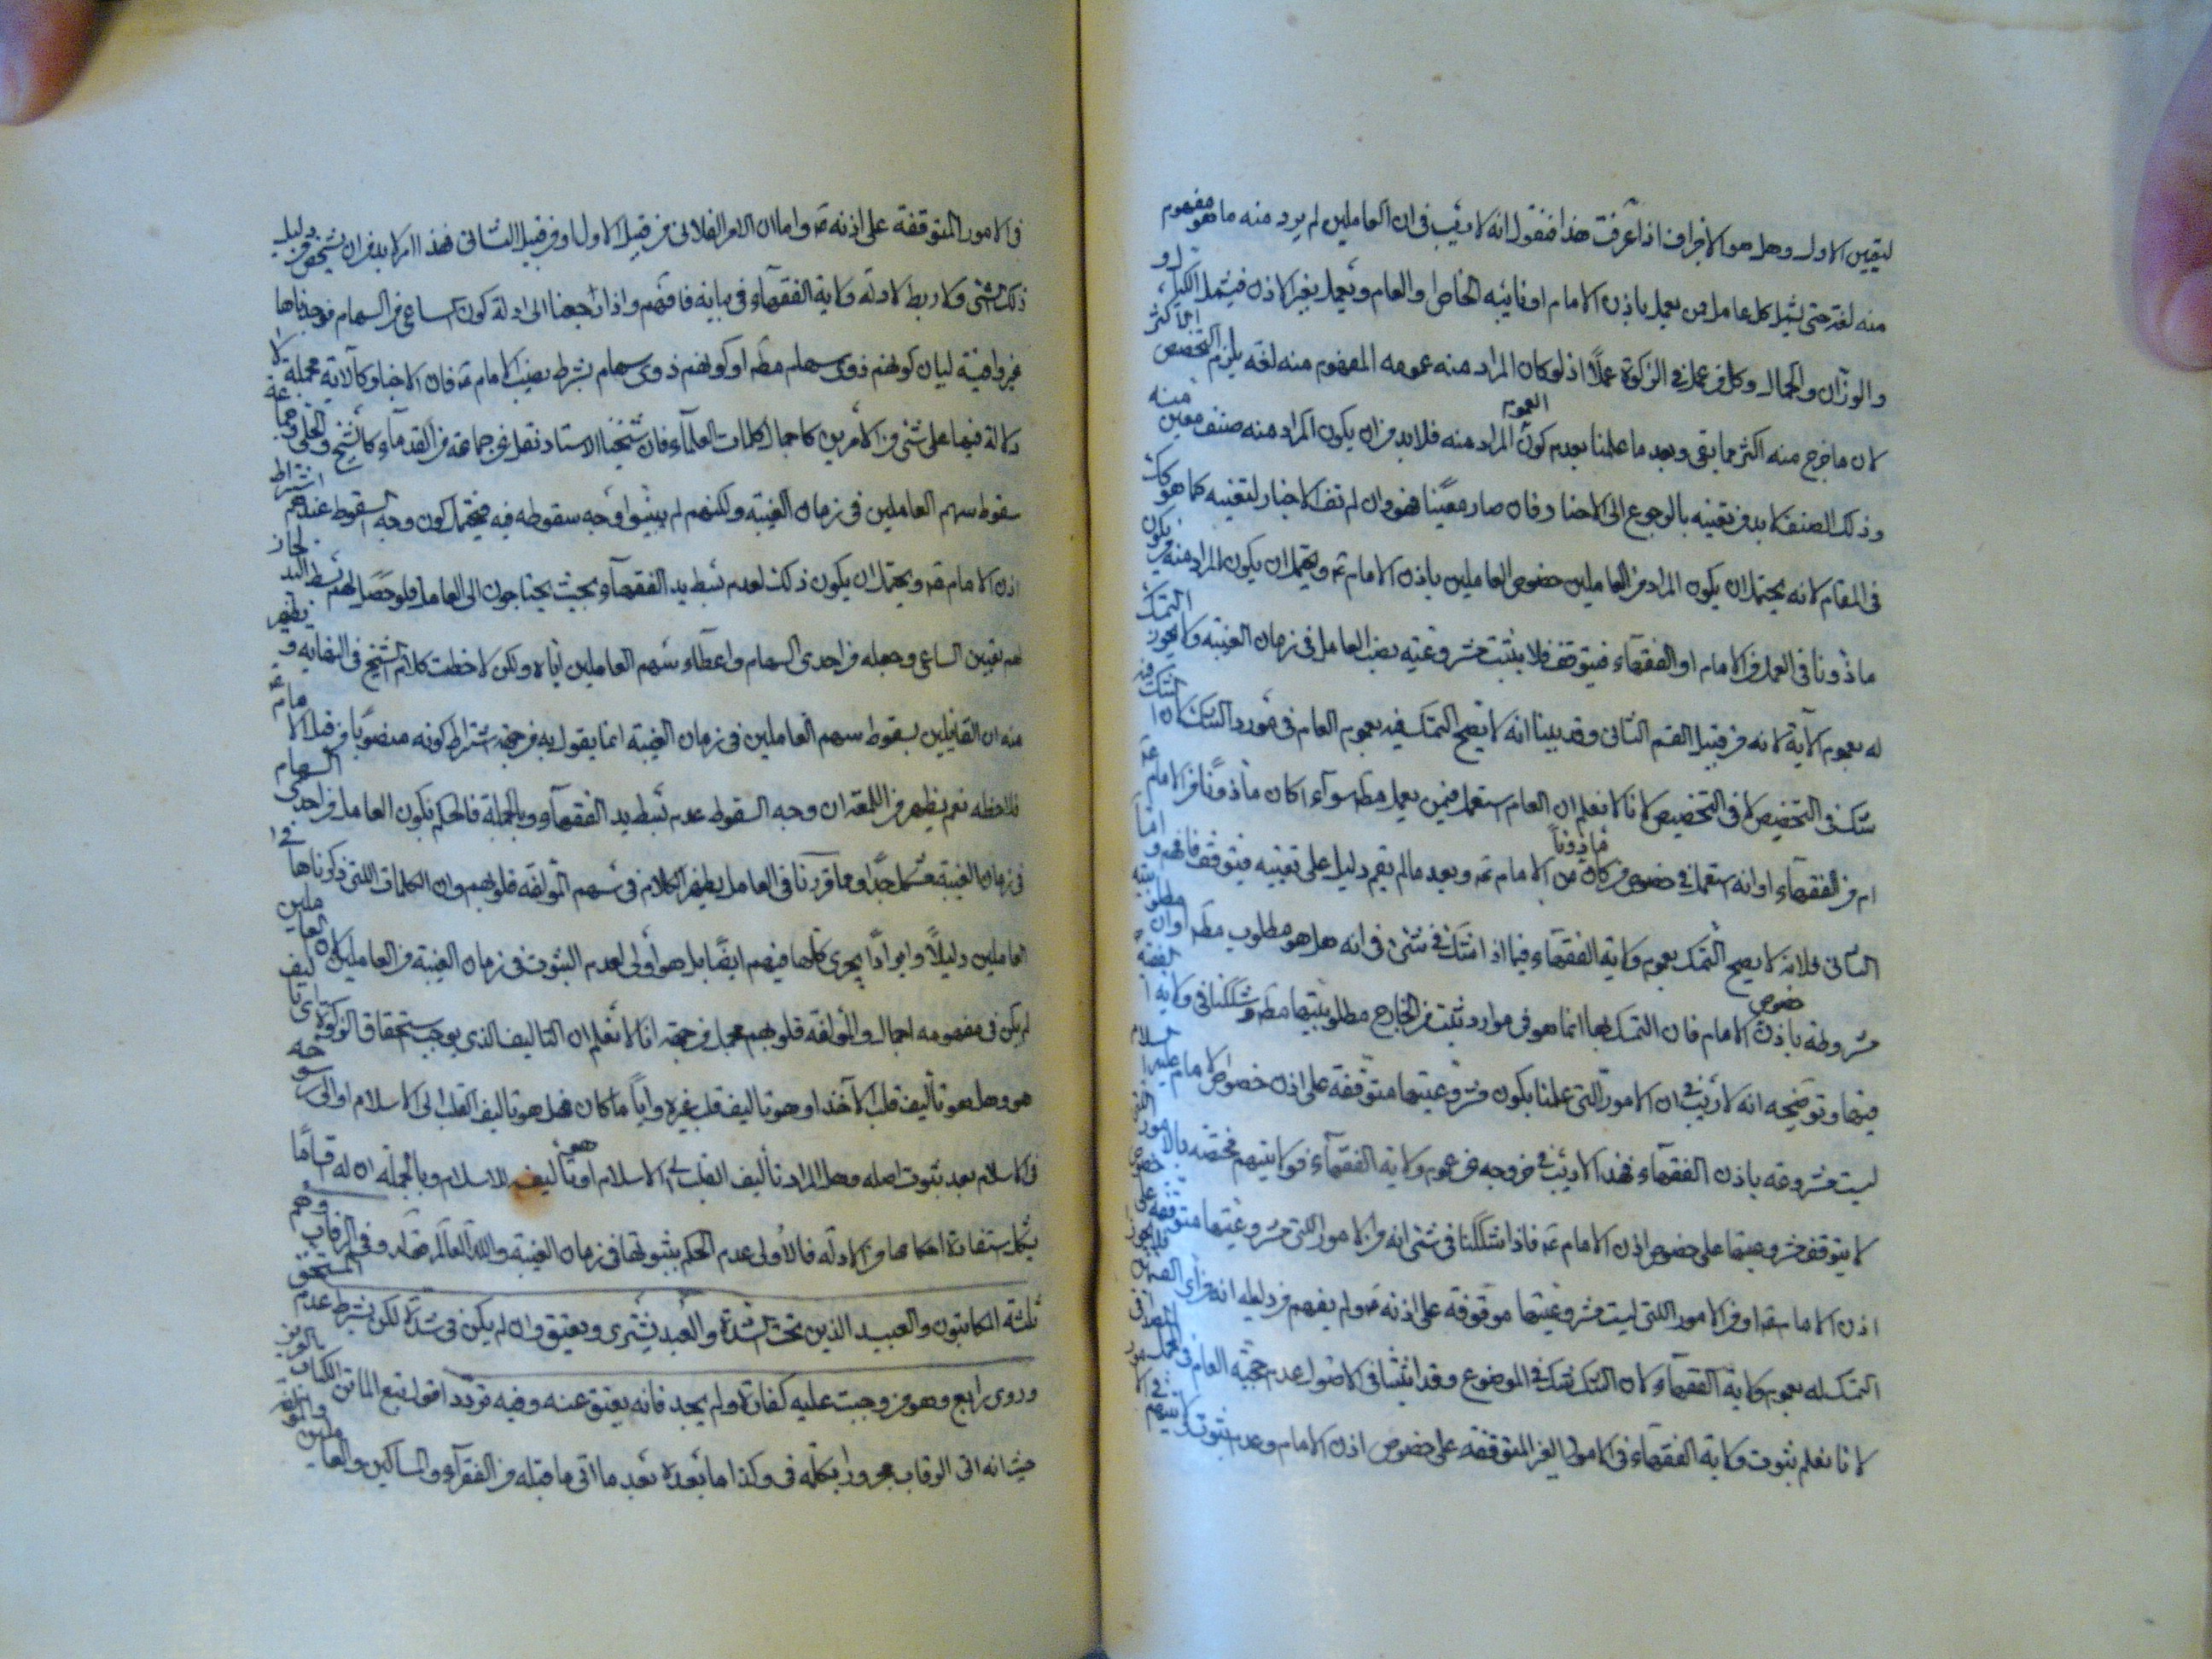 لتعيين الاول وهل هو الاجزاف اذا عرفت هذا فنقول انه لا ريب في ان العاملين لم يرد منه ما هو مفهوم
منه لغة حتى يشمل كل عامل ممن يعمل باذن الامام او نايبه الخاص او العام ويعمل بغير الاذن فيشمل الكيال
والوزان والجمال وكل من عمل في الزكوة عملاً اذ لو كان المراد منه عمومه المفهوم منه لغة يلزم التخصيص الاكثر
لان ما خرج منه اكثر مما بقي وبعد ما علمنا بعدم كون العموم المراد منه فلا بد من ان يكون المراد منه صنف معين منه
وذلك الصنف لا بد من تعيينه بالرجوع الى الاخبار فان صار معيّنا فهو وان لم تف الاخبار لتعيينه كما هو كك
في المقام لانه يحتمل ان يكون المراد من العاملين خصوص العاملين باذن الامام عم ويحتمل ان يكون المراد منه من يكون
ماذونا في العمل من الامام او الفقهآء فيتوقف فلا يثبت مشروعية نصب العامل في زمان الغيبة ولا يجوز التمسك
له بعموم الآية لانه من قبيل القسم الثاني وقد بينا انه لا يصح التمسك فيه بعموم العام في مورد الشك لان الشك فيه
شك في التخصيص لا في التخصيص لانا لا نعلم ان العام استعمل فيمن يعمل مطم سوآء اكان ماذوناً من الامام عم
ام من الفقهآء او انه استعمل في خصوص من كان ماذوناً من الامام عم وبعد ما لم يقم دليل على تعيينه فيتوقف فافهم واما
الثاني فلانه لا يصح التمسك بعموم ولاية الفقهآء فيما اذا شك في شئ في انه هل هو مطلوب مطم او ان مطلوبيته
مشروطة باذن خصوص الامام فان التمسك بها انما هو في موارد ثبت من الخارج مطلوبيتها مطم وشككنا في ولاية الفقهآء
فيها وتوضيحه انه لا ريب في ان الامور التي علمنا بكون مشروعيتها متوقفة على اذن خصوص الامام عليه السلام
ليست مشروعة باذن الفقهآء فهذا لا ريب في خروجه عن عموم ولاية الفقهآء فولايتهم مختصة بالامور التي
لا يتوقف مشروعيتها على خصوص اذن الامام عم فاذا شككنا في شئ انه من الامور التي مشروعيتها متوقفة على خصوص
اذن الامام عم او من الامور اللتى ليست مشروعيتها موقوفة على اذنه عم ولم يفهم من دليله انه من اي القسمين فلا يجوز
التمسك له بعموم ولاية الفقهآء لان الشك شك في الموضوع وقد اثبتنا في الاصول عدم حجية العام في
لانا نعلم بثبوت ولاية الفقهآء في الامور الغير المتوقفة على خصوص اذن الامام وعدم ثبوت ولايتهم في الامور
في الامور المتوقفة على اذنه عم واما ان الامر الفلاني من قبيل الاول او من قبيل الثاني فهذا امر لا بد من ان يشخص من دليل
ذلك الشئ ولا ربط لادلة ولاية الفقهآء في بيانه فافهم واذا راجعنا الى ادلة كون الساعي من السهام فوجدناها
غير وافية لبيان كونهم ذوي سهام مطم او كونهم ذوي سهام بشرط نصب الامام عم فان الاخبار كالآية مجملة لا
دلالة فيها على شئ من الامرين كاجمال كلمات العلمآء فان شيخنا الاستاد نقل عن جماعة من القدمآء كالشيخ والحلى وجماعة
سقوط سهم العاملين في زمان الغيبة ولكنهم لم يبينوا وجه سقوطه فيه فيحتمل كون وجه السقوط عندهم اشتراط
اذن الامام عم ويحتمل ان يكون ذلك لعدم بسط يد الفقهآء بحيث يحتاجون الى العامل فلو حصل لهم بسط اليد لجاز
لهم تعيين الساعي وجعله من احدى السهام واعطآء سهم العاملين اياه ولكن لاحظت كلام الشيخ في النهايه ويظهر
منه ان القايلين بسقوط سهم العاملين في زمان الغيبة انما يقول به من جهة اشتراط كونه منصوبًا من قبل الامام عم
فلاحظه نعم يظهر من اللمعة ان وجه السقوط عدم بسط يد الفقهآء وبالجملة فالحكم بكون العامل من احدى السهام
في زمان الغيبة مشكل جدًّا ومما قررنا في العامل يظهر الكلام في سهم المولفة قلوبهم وان الكلمات اللتى ذكرناها في
العاملين دليلاً وايرادًا يجرى كلها فيهم ايضًا بل هو اولى لعدم الثبوت في زمان الغيبة من العاملين لان العاملين
لم يكن في مفهومه اجمال والمؤلفة قلوبهم مجمل من جهة انا لا نعلم ان التاليف الذي يوجب استحقاق الزكوة اي تاليف
هو وهل هو تاليف قلب الآخذ او هو تاليف قلب غيره واياً ما كان فهل هو تاليف القلب الى الاسلام او الى رسوخه
في الاسلام بعد ثبوت اصله وهل المراد تأليف القلب الى الاسلام او تاليفه للاسلام وبالجملة ان له اقسامًا
يشكل استفادة احكامها من الادلة فالاولى عدم الحكم بثبوتها في زمان الغيبة والله العالم وفى الرقاب وهم
ثلثة المكاتبون والعبيد الذين تحت الشدة والعبد يشترى ويعتق وان لم يكن في شدة لكن بشرط عدم المستحق
وروى رابع وهو من وجبت عليه كفارة ولم يجد فانه يعتق عنه وفيه تردد اقول تبع الماتن الكتاب
حيث انه اتى الرقاب مجرورا بكلمة في وكذا ما بعده بعد ما اتى ما قبله من الفقرآء والمساكين والعاملين والمولفة